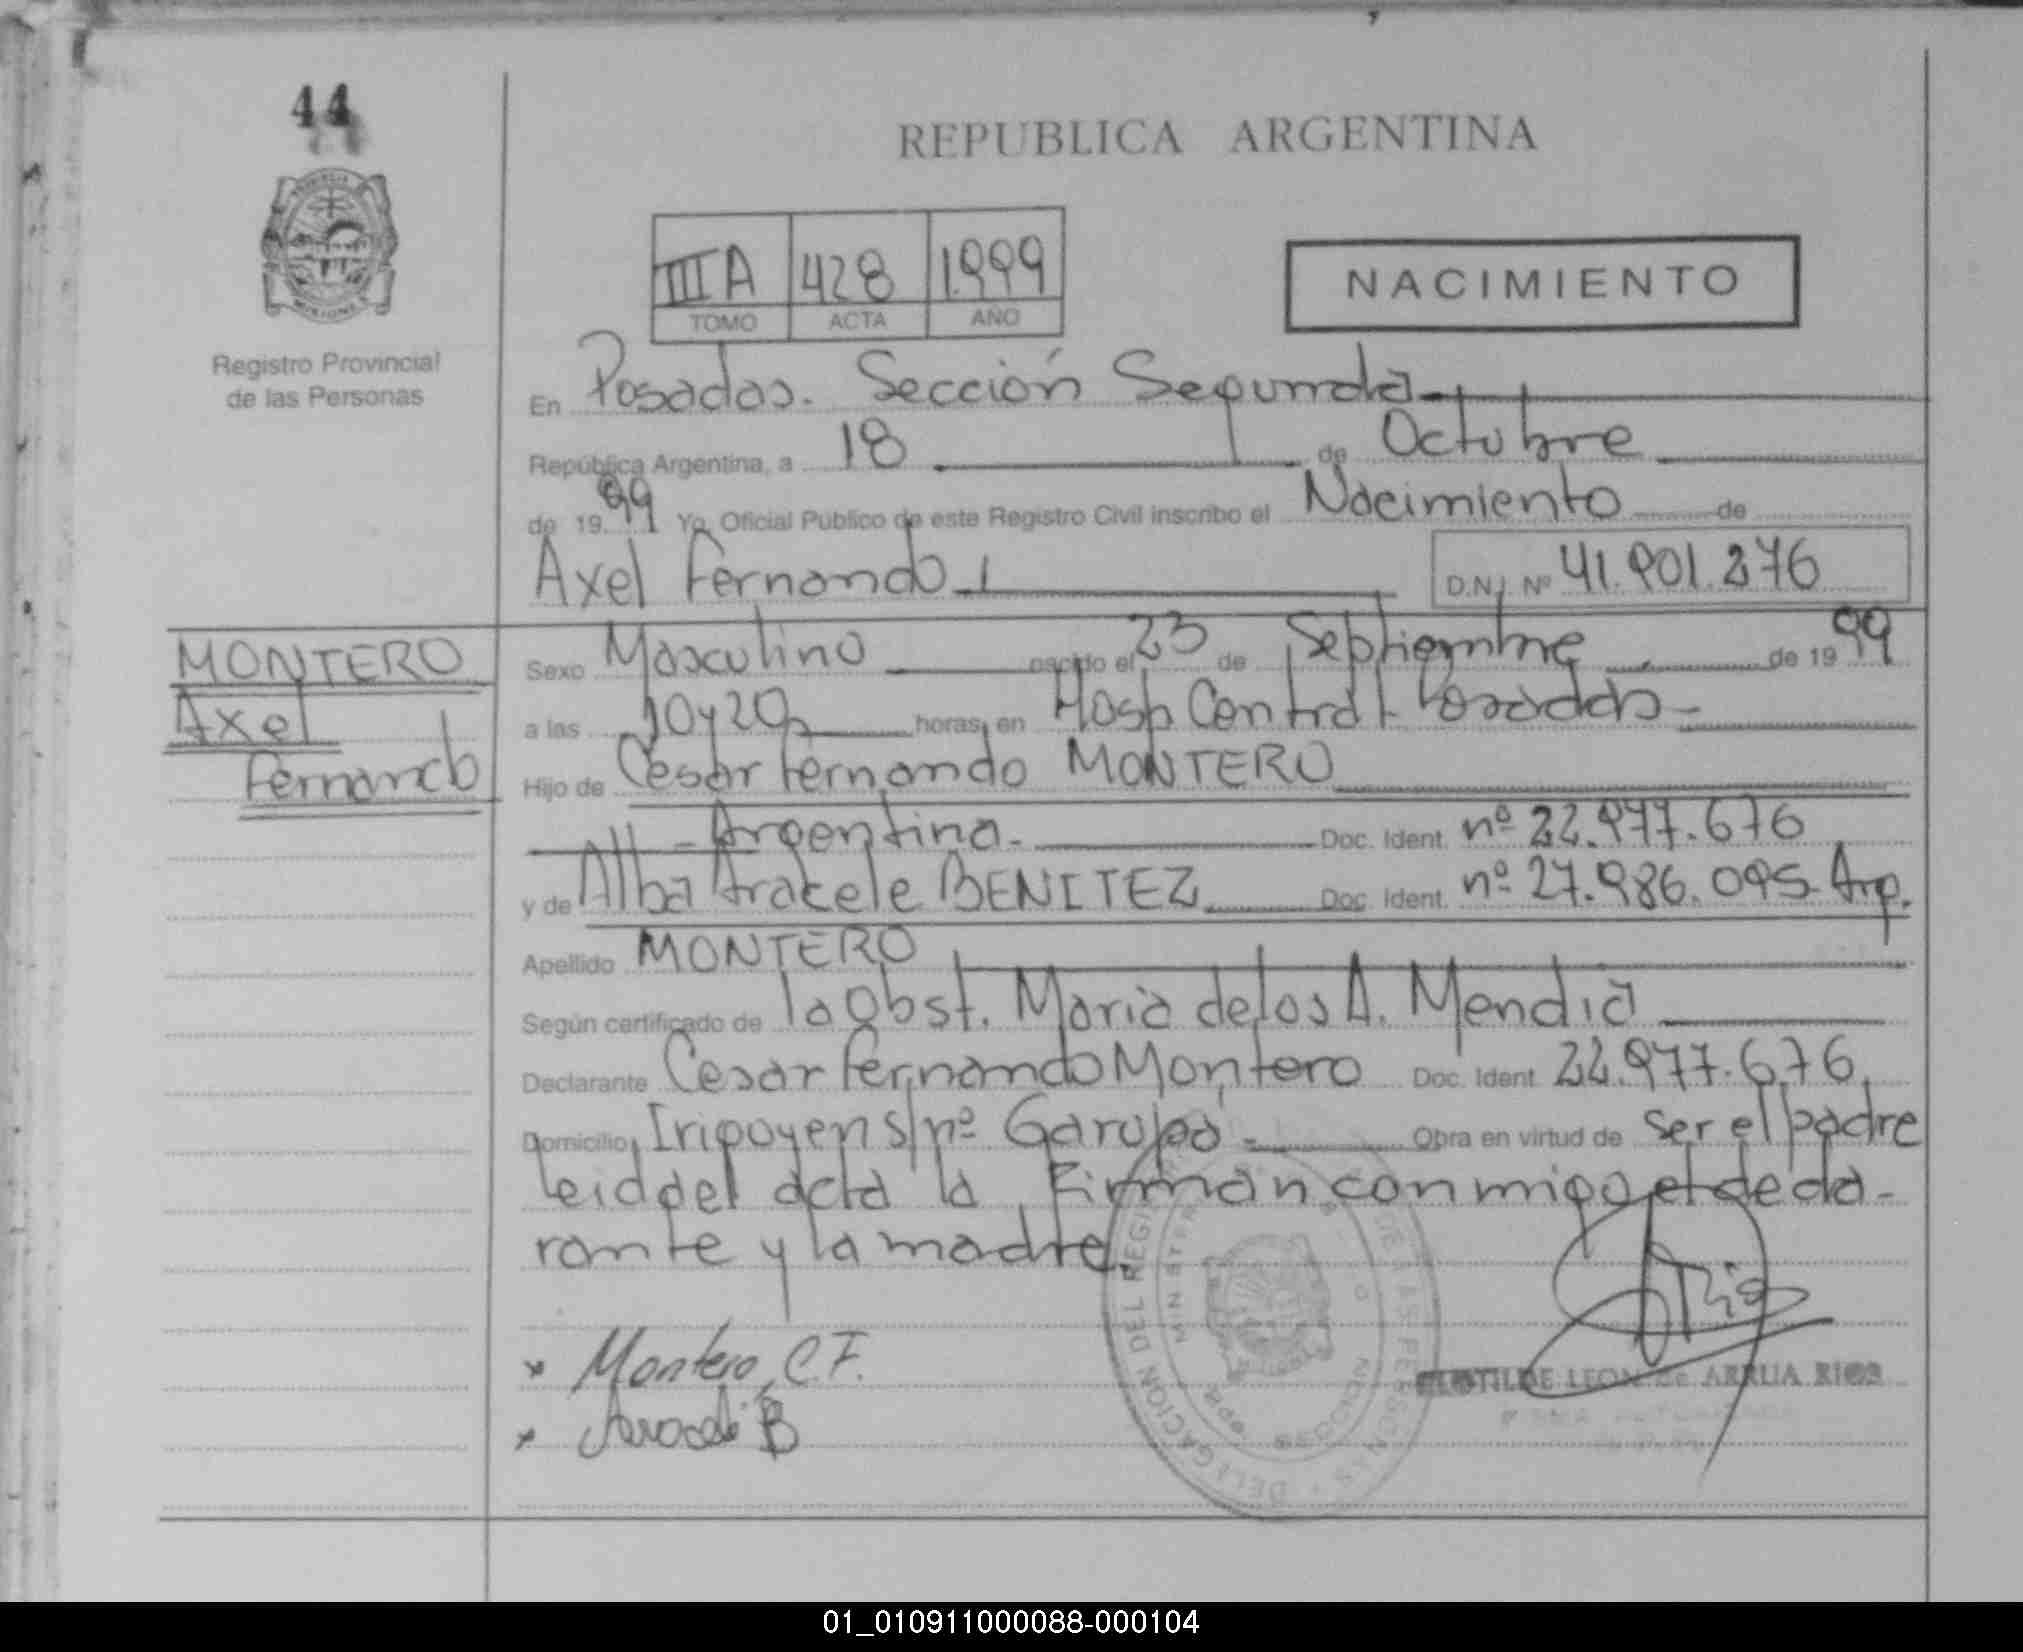 44
REPUBLICA ARGENTINA
III A 428 1999
TOMO ACTA AÑO
NACIMIENTO
Registro Provincial
de las Personas
En Posadas. Sección Segunda
República Argentina, a 18 de Octubre
de 1999 Yo, Oficial Público de este Registro Civil inscribo el Nacimiento de
Axel Fernando D.N.I. Nº 41.901.276
MONTERO
Axel
Fernando
Sexo Masculino nacido el 23 de Septiembre de 1999
a las 10y20 horas, en Hosp Central Posadas-
Hijo de Cesar Fernando MONTERO
- Argentina. Doc. Ident. nº 22.977.676
y de Alba BENITEZ Doc. Ident. nº 27.986.095. Arg.
Apellido MONTERO
Según certificado de la Obst. Maria de los A. Mendia
Declarante Cesar Fernando Montero Doc. Ident 22.977.676
Domicilio Irigoyen s/nº Garupá - Obra en virtud de ser el padre
leida el acta la Firman conmigo el decla-
rante y la madre.
x Montero, C.F.
x B
DELEGACION DEL REGISTRO DE LAS PERSONAS
SECCION
CLOTILDE LEON de ARRUA RIOS
01_010911000088-000104